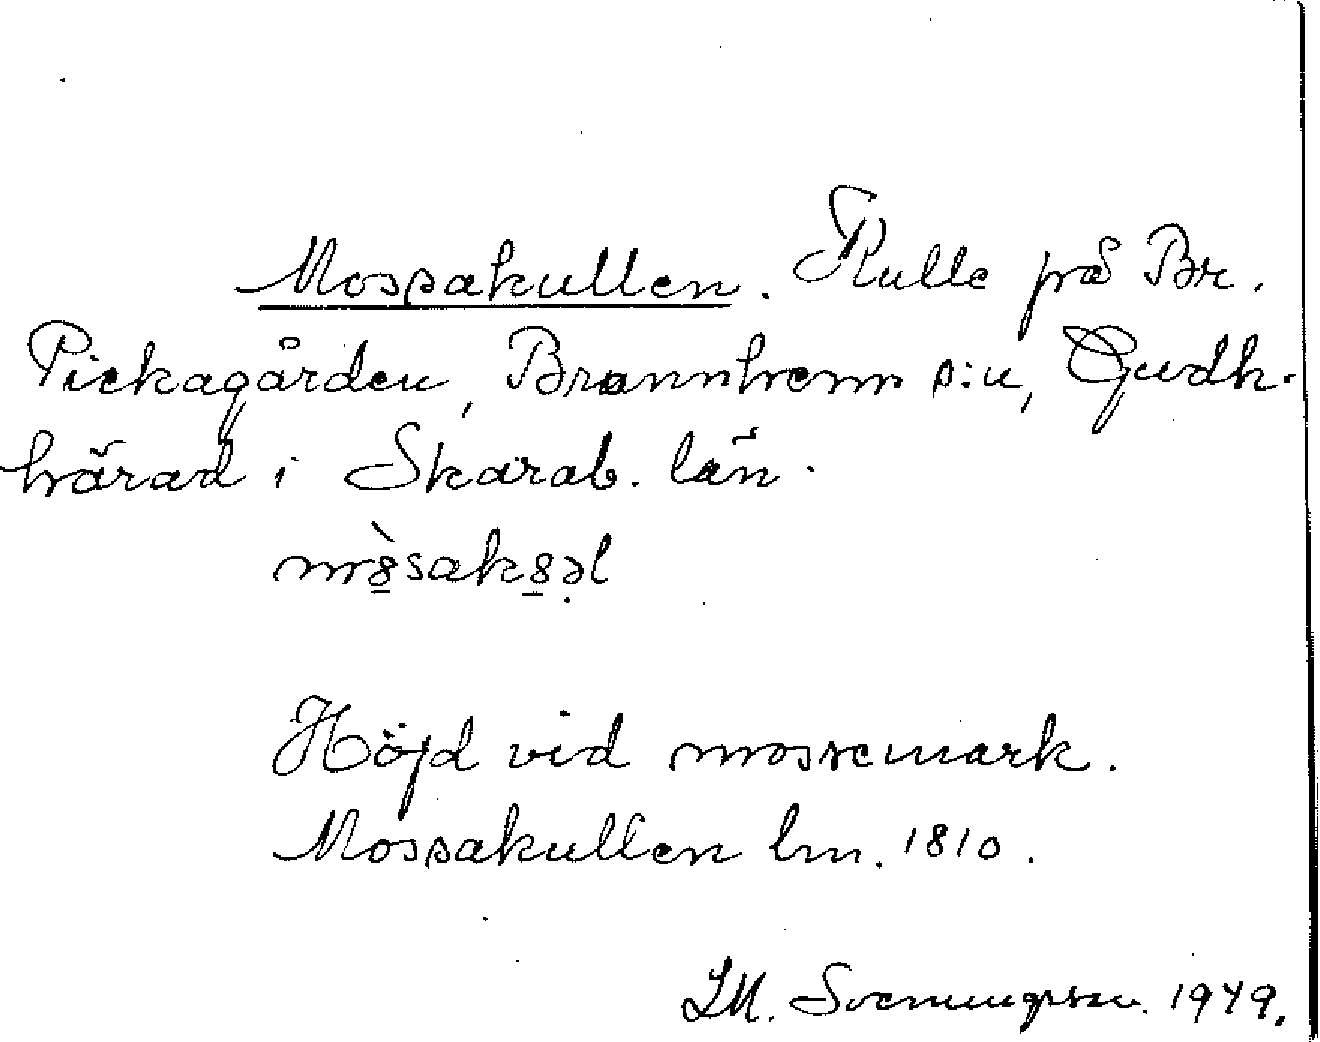 Mossakullen. Kulle på Br.
Pickagården, Brannhem s:n, Gudh.
härad i Skarab. län.
mò̲sako̲əl
Höjd vid mossemark.
Mossakullen lm. 1810.
Svenungsson. 1949.